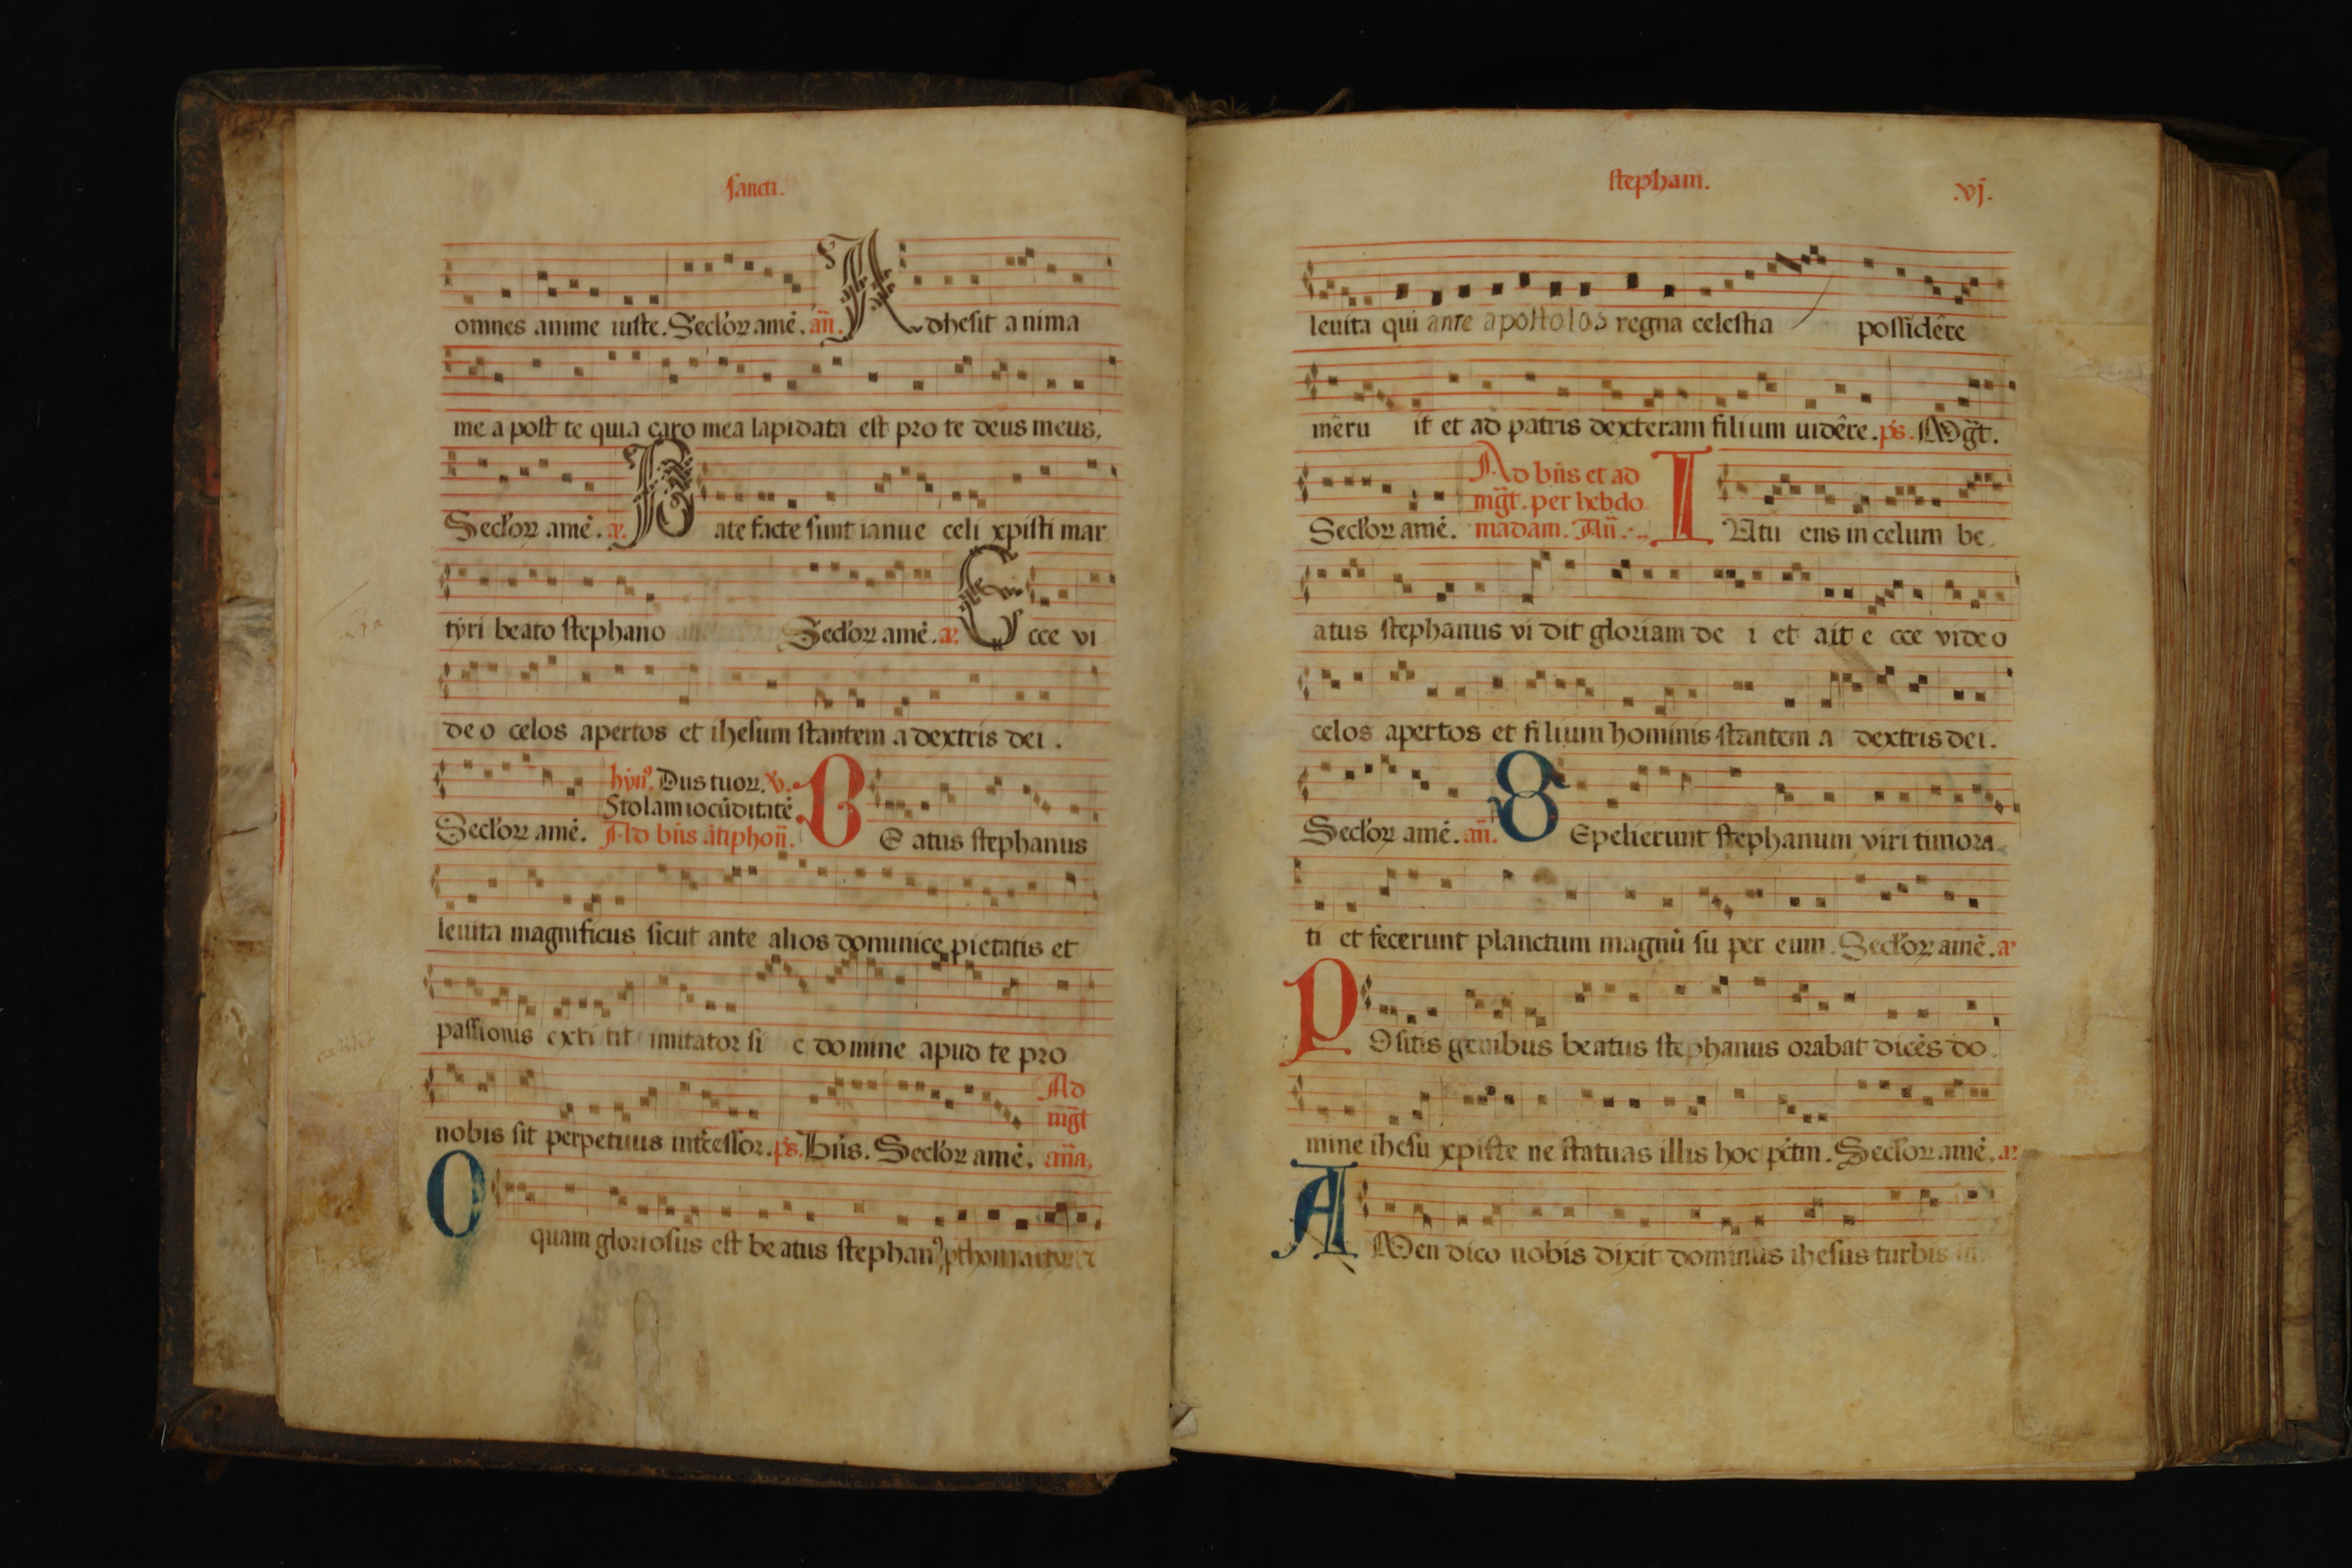 sancti.
omnes anime iuste. Seclor̄ꝝ amē. añ. A dhesit anima
me a post te quia caro mea lapidata est pro te deus meus.
Seclor̄ꝝ amē. a. P ate facte sunt ianue celi xpisti mar
tyri beato stephano Seclor̄ꝝ amē. a. E cce vi
de o celos apertos et ihesum stantem a dextris dei.
hyn⁹. Dus tuoꝝ. v̄.
Stolam iocūditatē
Seclor̄ꝝ amē. Ad bn̄s ātiphoñ. B E atus stephanus
leuita magnificus sicut ante alios dominice pietatis et
passionis extitit imitator si c domine apud te pro
Ad
mḡt
nobis sit perpetuus int̄cessor. ps. Bn̄s. Seclor̄ꝝ amē. aña.
O quam gloriosus est be atus stephan⁹
stephani. .vj.
leuita qui ante apostolos regna celestia possidēre
mēru it et ad patris dexteram filium uidēre. ps. Mḡt.
Ad bn̄s et ad
mḡt. per hebdo
Seclor̄ꝝ amē. madam. Añ. I Ntu ens in celum be
atus stephanus vi dit gloriam de i et ait e cce video
celos apertos et filium hominis stantem a dextris dei.
Seclor̄ꝝ amē. añ. S Epelierunt stephanum viri timora
ti et fecerunt planctum magnū su per eum. Seclor̄ꝝ amē. a
P Ositis genibus beatus stephanus orabat dicēs do
mine ihesu xpiste ne statuas illis hoc pc̄tm. Seclor̄ꝝ amē. a
A Men dico uobis dixit dominus ihesus turbis